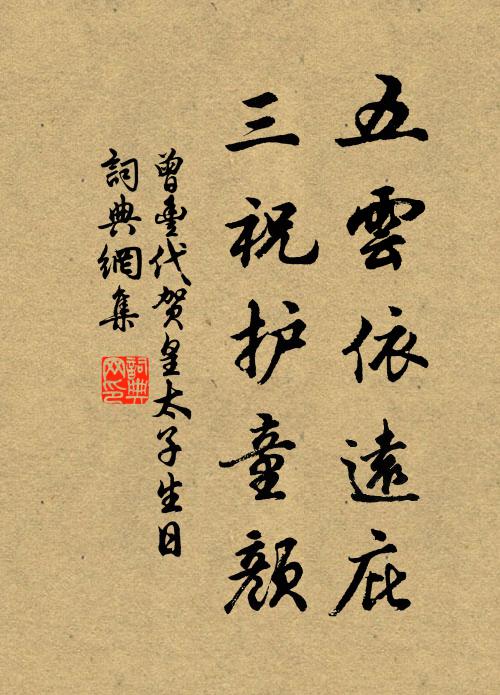 五雲依遠庇
三祝护童顏
曾豐代贺皇太子生日
詞典網集
詞典
网印